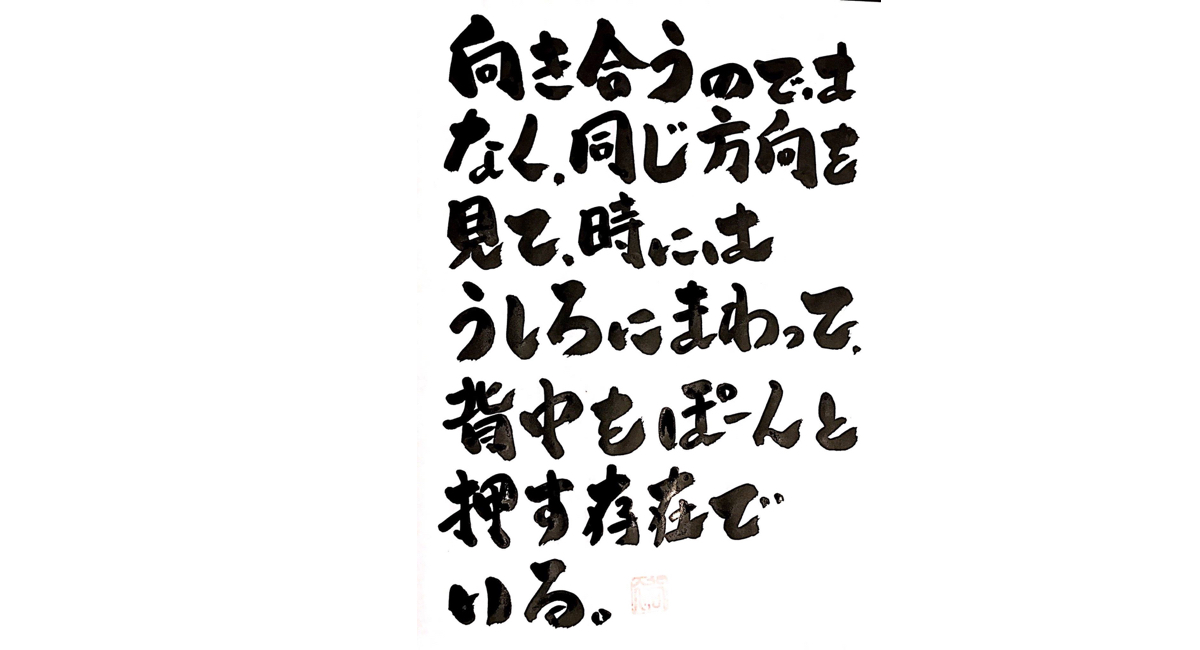 向き合うのでは
なく、同じ方向を
見て、時には
うしろにまわって、
背中をぽーんと
押す存在で
いる。